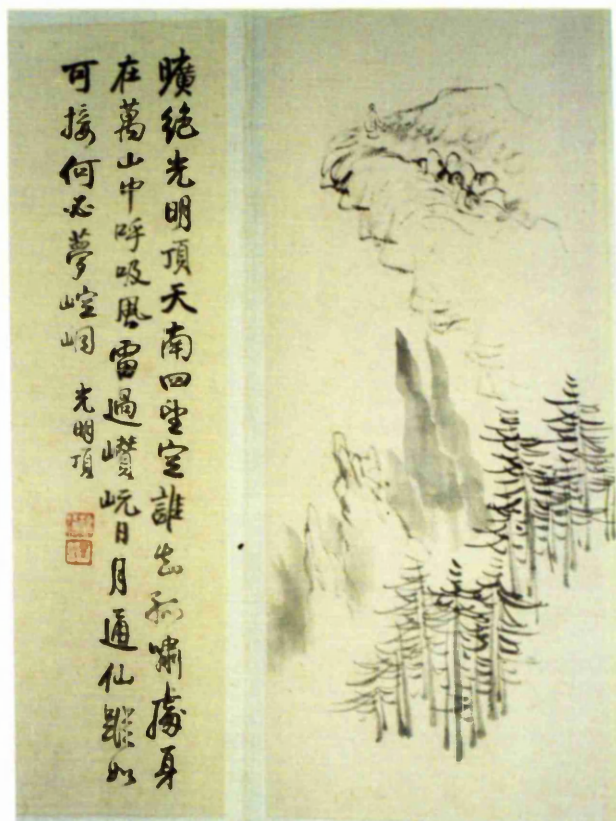 曠絶光明頂天南四望空誰知孤嘯處身
在萬山中呼吸風雷過巑岏日月通仙蹤如
可接何必夢崆峒 光明頂